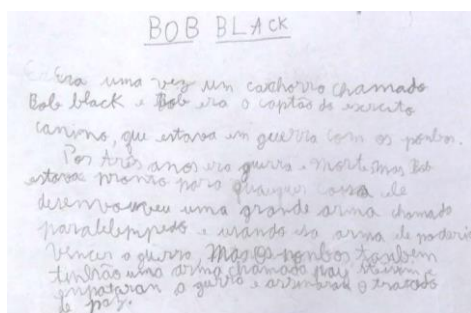 BOB BLACK
Era uma vez um cachorro chamado
Bob black e Bob era o captão do exercito
canino, que estava em guerra com os pombos.
Por três anos era guerra e morte mas Bob
estava pronto para qualquer coisa ele
desenvouveu uma grande arma chamada
paralelepipedo e usando sa arma ele poderia
vencer a guerra, Mas os pombos tambem
tinhão uma arma chamada
enpataran a guerra e asinaran o tratado
de paz.